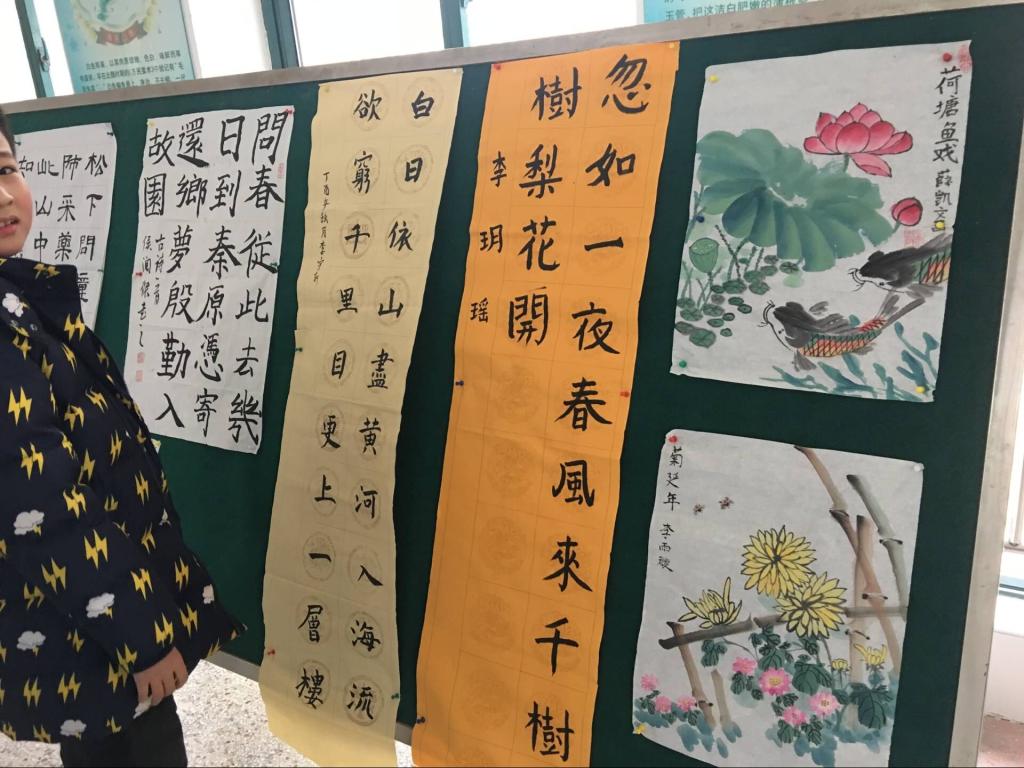 玉管，把这洁白肥嫩的
荷塘鱼戏 薛凯文
菊延年 李雨
忽如一夜春風來千樹
樹梨花開
李玥瑶
白日依山盡黄河入海流
欲窮千里目更上一層樓
問春從此去幾
日到秦原憑寄
還鄉夢殷勤入
故園
松下問童
師采藥
此山中
如